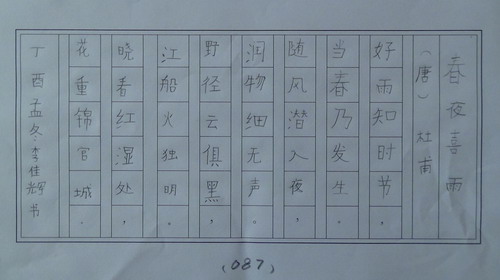 春夜喜雨
（唐）杜甫
好雨知时节，
当春乃发生。
随风潜入夜，
润物细无声。
野径云俱黑，
江船火独明。
晓看红湿处，
花重锦官城。
丁酉孟冬李佳辉书
（087）